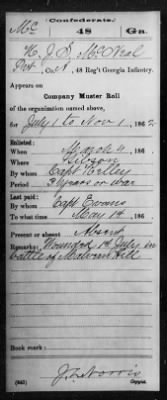 (Confederate.)
Mc 48 Ga.
H. J. D. McNeal
Pvt, Co. A, 48 Reg't Georgia Infantry.
Appears on
Company Muster Roll
of the organization named above,
for July 1 to Nov 1, 1862.
Enlisted:
When March 4, 186
Where Gibson
By whom Capt Kelley
Period 3 years or war
Last paid:
By whom Capt Evans
To what time May 14, 186
Present or absent Absent
Remarks: Wounded 1st July in
battle of Malvern Hill
Book mark:
J. L. Norris
(642) Copyist.